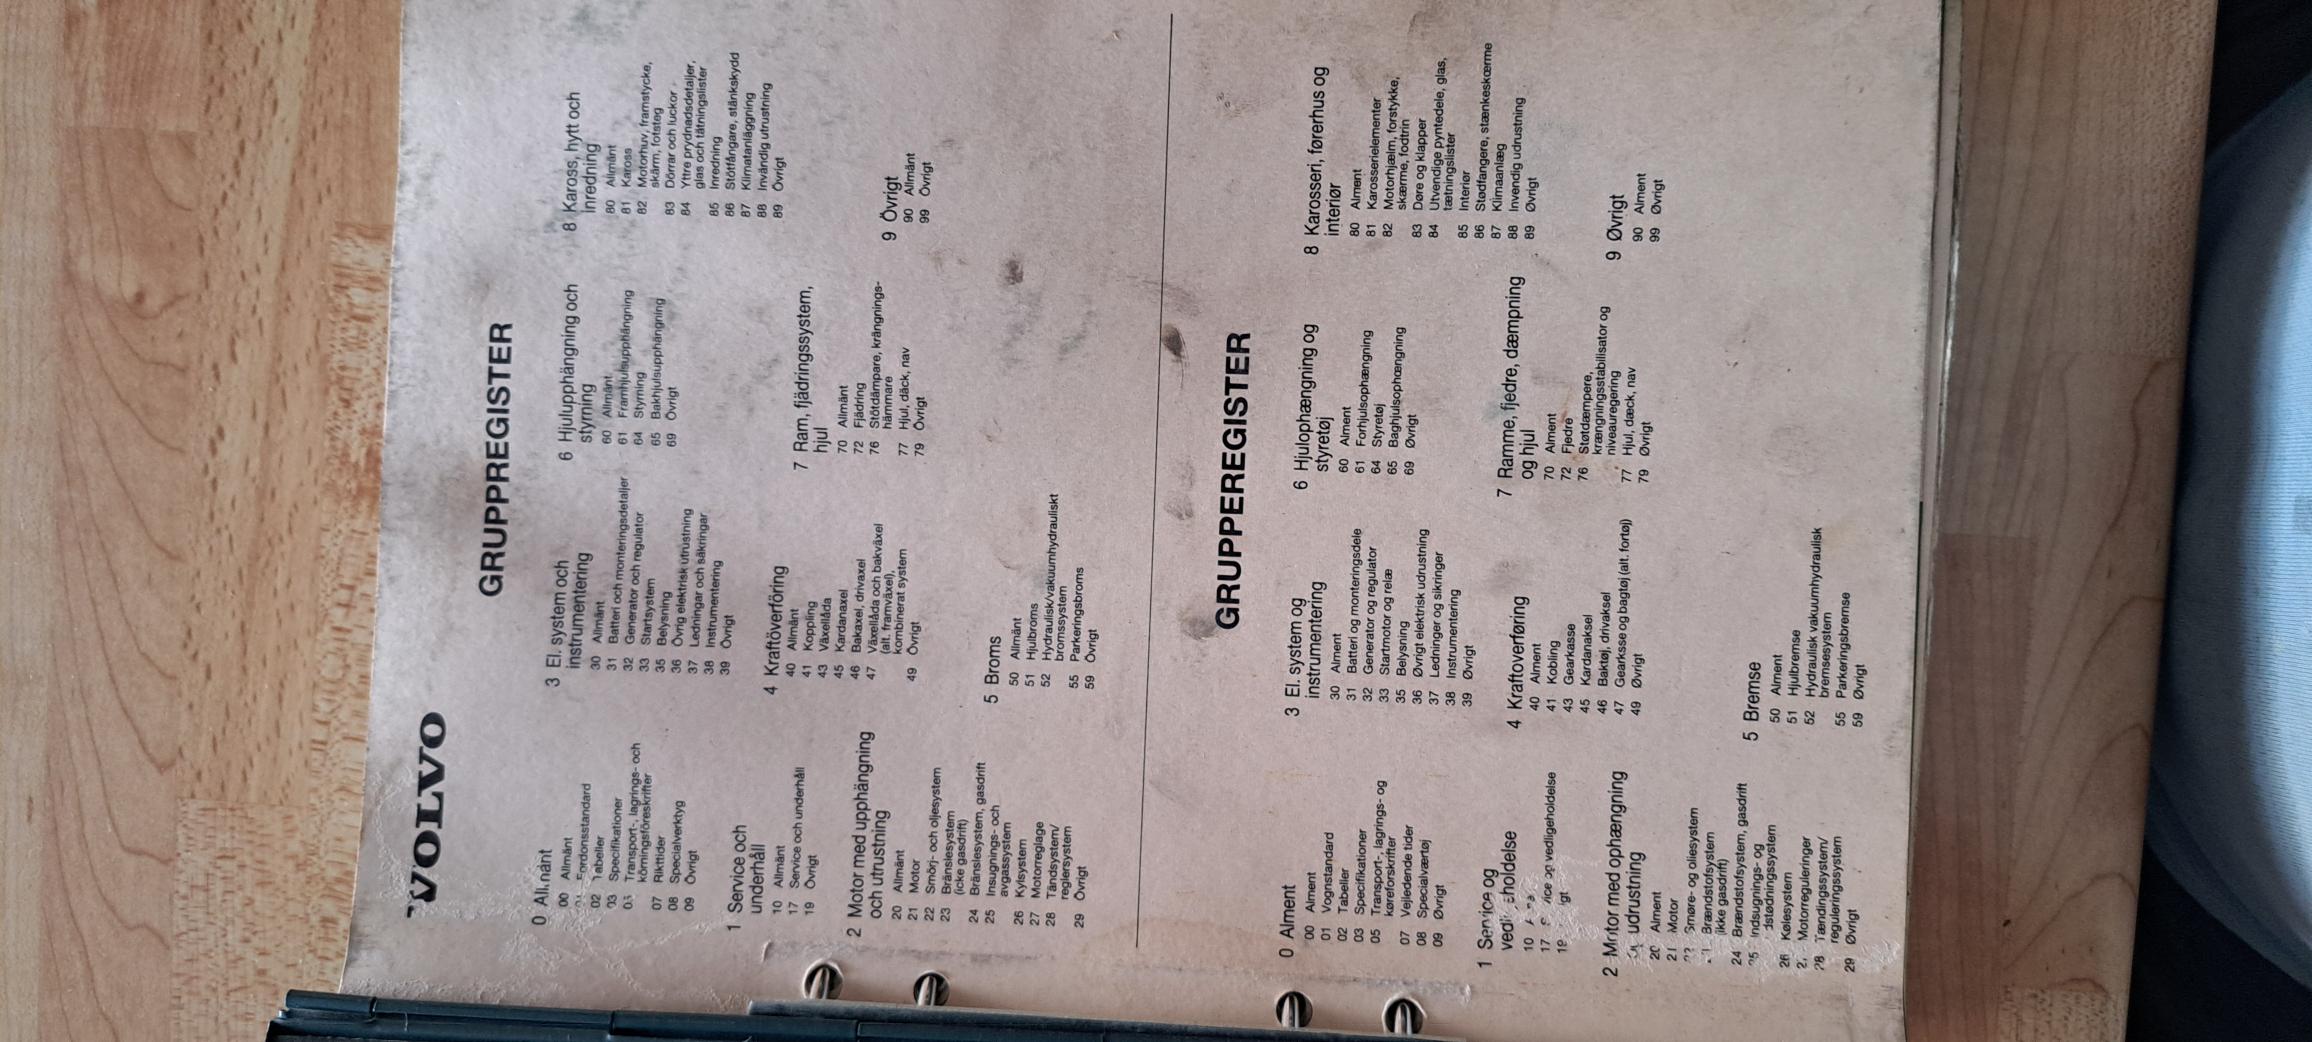 VOLVO
GRUPPREGISTER
0 Allmänt
00 Allmänt
Fordonsstandard
02 Tabeller
03 Specifikationer
05 Transport-, lagrings- och
körningsföreskrifter
07 Rikttider
08 Specialverktyg
09 Övrigt
1 Service och
underhåll
10 Allmänt
17 Service och underhåll
19 Övrigt
2 Motor med upphängning
och utrustning
20 Allmänt
21 Motor
22 Smörj- och oljesystem
23 Bränslesystem
(icke gasdrift)
24 Bränslesystem, gasdrift
25 Insugnings- och
avgassystem
26 Kylsystem
27 Motorreglage
28 Tändsystem/
reglersystem
29 Övrigt
3 El. system och
instrumentering
30 Allmänt
31 Batteri och monteringsdetaljer
32 Generator och regulator
33 Startsystem
35 Belysning
36 Övrig elektrisk utrustning
37 Ledningar och säkringar
38 Instrumentering
39 Övrigt
4 Kraftöverföring
40 Allmänt
41 Koppling
43 Växellåda
45 Kardanaxel
46 Bakaxel, drivaxel
47 Växellåda och bakväxel
(alt. framväxel),
kombinerat system
49 Övrigt
5 Broms
50 Allmänt
51 Hjulbroms
52 Hydraulisk/vakuumhydrauliskt
bromssystem
55 Parkeringsbroms
59 Övrigt
6 Hjulupphängning och
styrning
60 Allmänt
61 Framhjulsupphängning
64 Styrning
65 Bakhjulsupphängning
69 Övrigt
7 Ram, fjädringssystem,
hjul
70 Allmänt
72 Fjädring
76 Stötdämpare, krängnings-
hämmare
77 Hjul, däck, nav
79 Övrigt
8 Kaross, hytt och
inredning
80 Allmänt
81 Kaross
82 Motorhuv, framstycke,
skärm, fotsteg
83 Dörrar och luckor
84 Yttre prydnadsdetaljer,
glas och tätningslister
85 Inredning
86 Stötfångare, stänkskydd
87 Klimatanläggning
88 Invändig utrustning
89 Övrigt
9 Övrigt
90 Allmänt
99 Övrigt
GRUPPEREGISTER
0 Alment
00 Alment
01 Vognstandard
02 Tabeller
03 Specifikationer
05 Transport-, lagrings- og
køreforskrifter
07 Vejledende tider
08 Specialværtøj
09 Øvrigt
1 Service og
10
17 og vedligeholdelse
19
2 Motor med ophængning
udrustning
20 Alment
21 Motor
Smøre- og oliesystem
Brændstofsystem
(ikke gasdrift)
24 Brændstofsystem, gasdrift
25 Indsugnings- og
26 Kølesystem
Motorreguleringer
28 Tændingssystem/
reguleringssystem
29 Øvrigt
3 El. system og
instrumentering
30 Alment
31 Batterí og monteringsdele
32 Generator og regulator
33 Startmotor og relæ
35 Belysning
36 Øvrigt elektrisk udrustning
37 Ledninger og sikringer
38 Instrumentering
39 Øvrigt
4 Kraftoverføring
40 Alment
41 Kobling
43 Gearkasse
45 Kardanaksel
46 Baktøj, drivaksel
47 Gearksse og bagtøj (alt. fortøj)
49 Øvrigt
5 Bremse
50 Alment
51 Hjulbremse
52 Hydraulisk vakuumhydraulisk
bremsesystem
55 Parkeringsbremse
59 Øvrigt
6 Hjulophængning og
styretøj
60 Alment
61 Forhjulsophængning
64 Styretøj
65 Baghjulsophængning
69 Øvrigt
7 Ramme, fjedre, dæmpning
og hjul
70 Alment
72 Fjedre
76 Støtdæmpere,
krængningsstabilisator og
niveauregering
77 Hjul, dæck, nav
79 Øvrigt
8 Karosseri, førerhus og
interiør
80 Alment
81 Karosserielementer
82 Motorhjælm, forstykke,
skærme, fodtrin
83 Døre og klapper
84 Utvendige pyntedele, glas,
tætningslister
85 Interiør
86 Stødfangere, stænkeskærme
87 Klimaanlæg
88 Invendig udrustning
89 Øvrigt
9 Øvrigt
90 Alment
99 Øvrigt